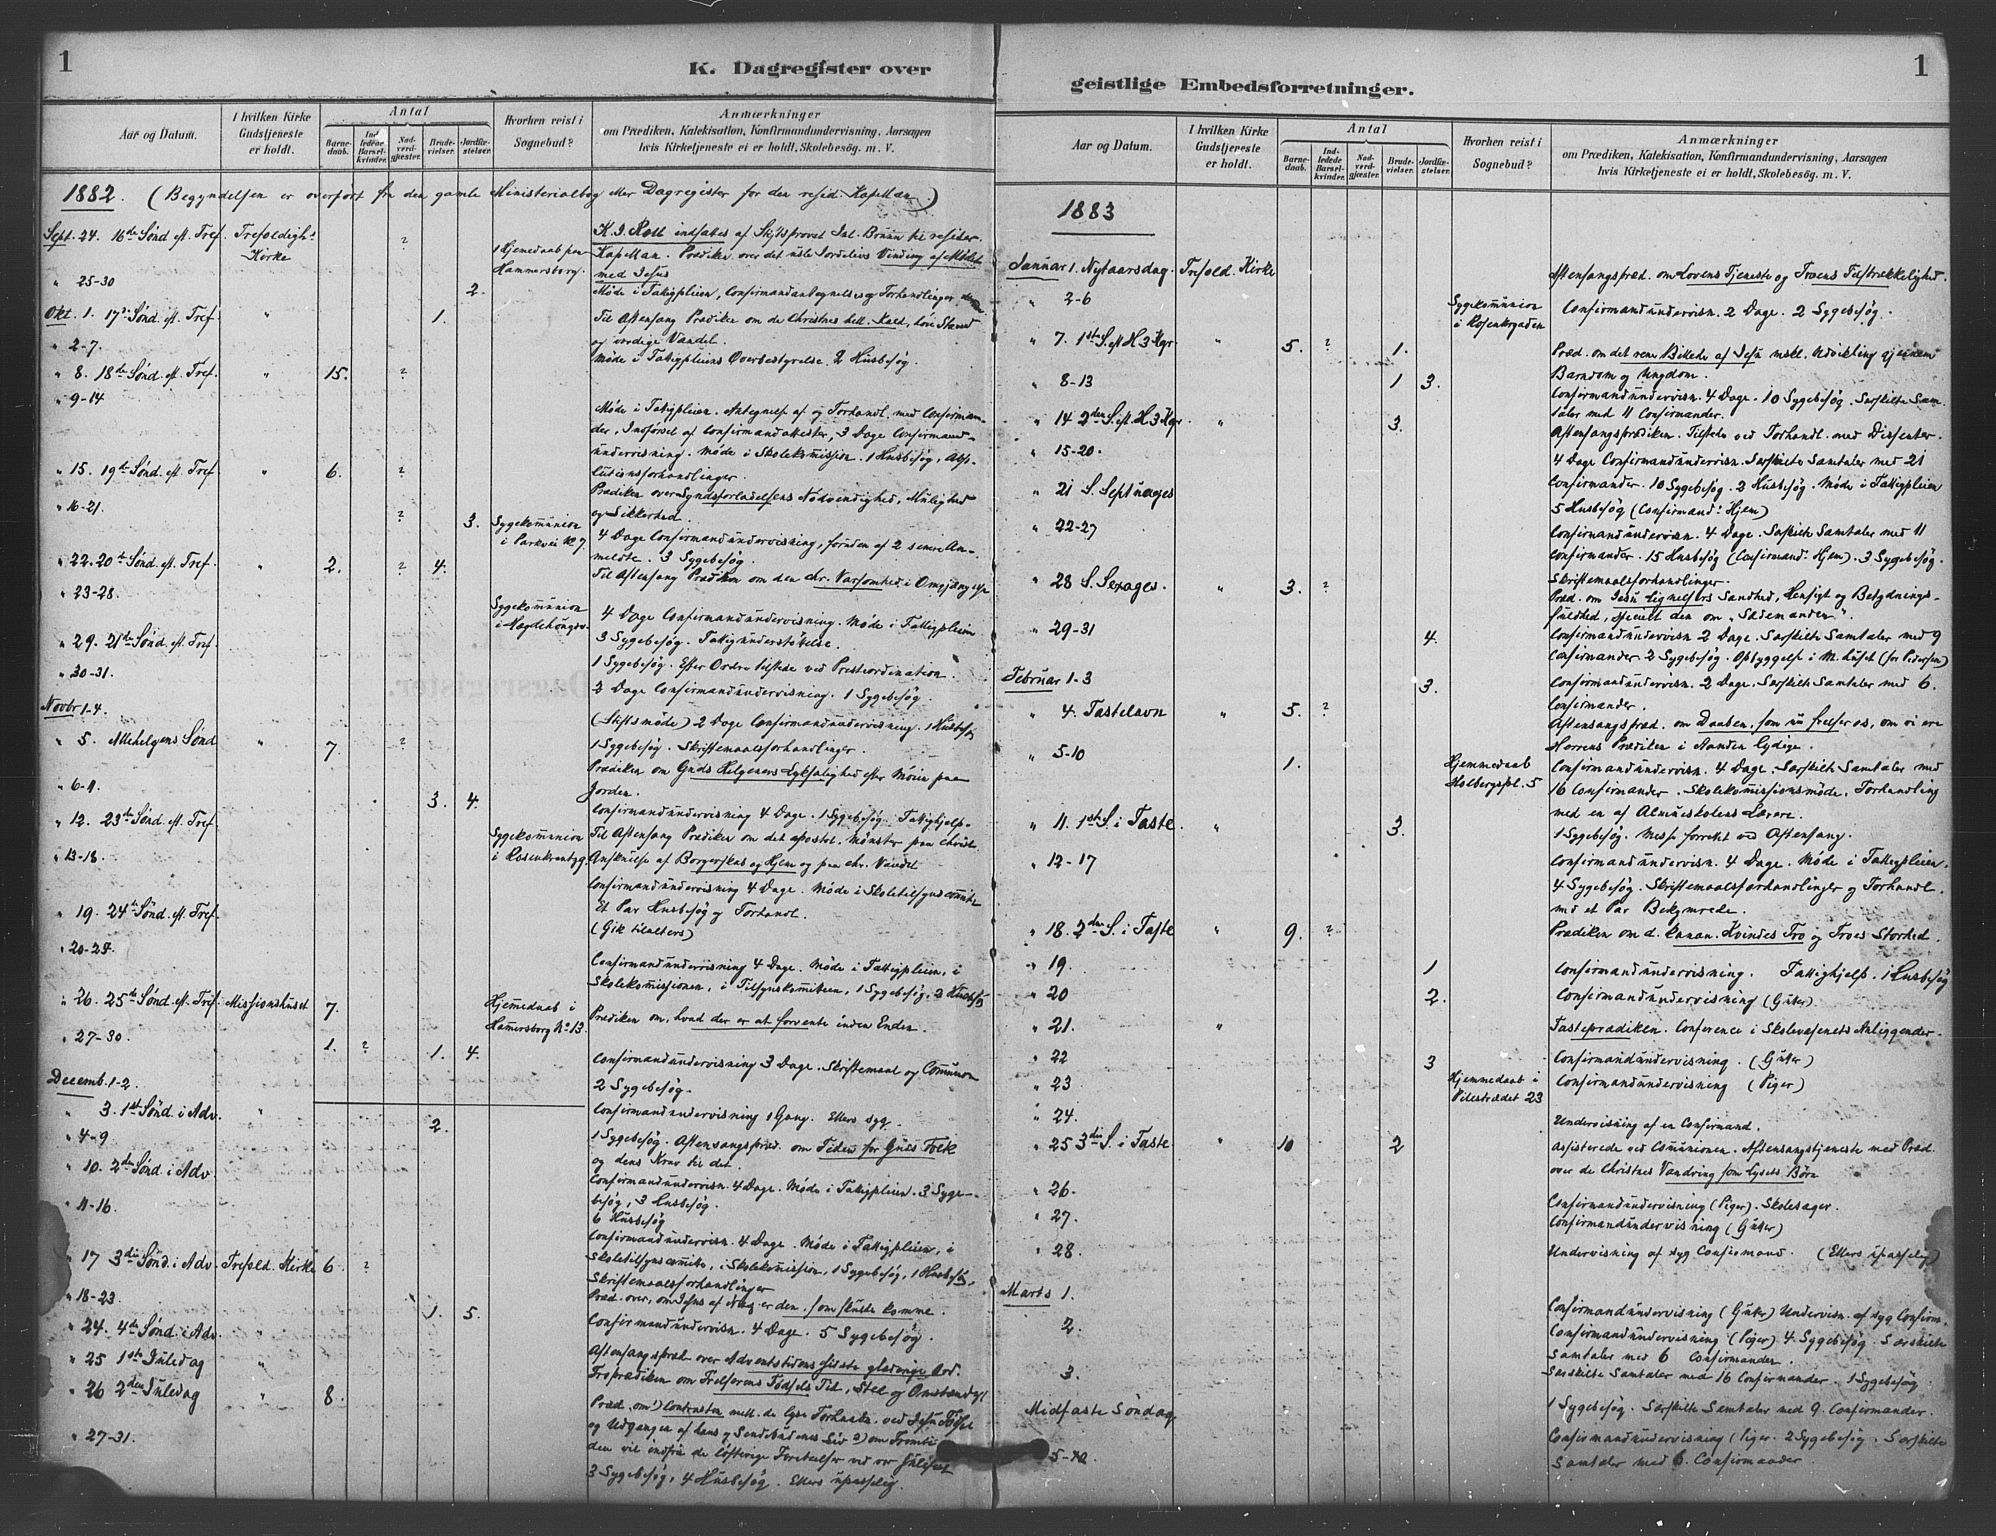 1
K. Dagregister over
Aar og Datum.
I hvilken Kirke Gudstjeneste er holdt.
Antal
Barnedaab.
Indledede Barselkvinder.
Nadverdgjæster.
Brudevielser.
Jordfæstelser.
Hvorhen reist i Sognebud?
Anmærkninger
om Prædiken, Katekisation, Konfirmandundervisning, Aarsagen
hvis Kirketjeneste ei er holdt, Skolebesøg. m. V.
1882. (Begyndelsen er overført fra den gamle Ministerialbog eller Dagregister for den resid. Kapellan.)
Sept. 24. 16de Sønd. eft. Tref. Trefoldigh. Kirke ?
1 Hjemmedaab paa Hammersborg.
indsættes af Stiftsprovst Jul. Bruun til resider.
Kapellan. Prædiken over
med Jesus
" 25-30 2.
Møde i Fattigpleien, Confirmandantegnelse og Forhandlinger
Okt. 1. 17de Sønd. eft. Tref. " 1.
Til Aftensang Prædiken om de Christnes hell. Kald, høie Stand
og værdige Vandel.
" 2-7.
Møde i Fattigpleiens Overbestyrelse. 2 Husbesøg.
" 8. 18de Sønd. eft. Tref. " 15. ?
" 9-14
Møde i Fattigpleien. Antegnelse af og Forhandl. med Confirman-
der. Indførsel af Confirmandattester, 3 Dage Confirmand-
undervisning. Møde i Skolekommission. 1 Husbesøg, Abso-
lutionsforhandlinger.
" 15. 19de Sønd. eft. Tref. " 6. ?
Prædiken over Syndsforladelsens Nødvendighed, Mulighed
og Sikkerhed.
" 16-21. ? 3. Sygekommunion i Parkvei No 7.
4 Dage Confirmandundervisning, foruden af 2 senere An-
meldte. 3 Sygebesøg.
" 22. 20de Sønd. eft. Tref. " 2. ? 4.
Til Aftensang Prædiken om den chr. Varsomhed i Omgjængelse
" 23-28. Sygekommunion
4 Dage Confirmandundervisning. Møde i Fattigpleien
3 Sygebesøg. Fattigunderstøttelse.
" 29. 21de Sønd. eft. Tref.
1 Sygebesøg. Efter Ordre tilstede ved Presteordination.
" 30-31.
2 Dage Confirmandundervisning. 1 Sygebesøg
Novbr 1-4.
(Stiftsmøde) 2 Dage Confirmandundervisning. 1 Husbesøg
1 Sygebesøg. Skriftemaalsforhandlinger.
" 5. Allehelgens Sønd " 7. ?
Prædiken om Guds Helgeners Lyksalighed efter Møien paa
Jorden.
" 6-11. 3. 4.
Confirmandundervisning 4 Dage. 1 Sygebesøg. Fattighjelp.
" 12. 23de Sønd. eft. Tref.
Til Aftensang Prædiken om det apostol. Mønster paa christ.
Anskuelse af Borgerskab og Hjem og paa chr. Vandel
" 13-18. Sygekommunion i Rosenkrantzg.
Confirmandundervisning 4 Dage. Møde i Skoletilsynscomite
Et Par Husbesøg og Forhandl.
" 19. 24de Sønd. eft. Tref.
(Gik tilalters)
" 20-25.
Confirmandundervisning 4 Dage. Møde i Fattigpleien, i
Skolekommissionen, i Tilsynskomiteen, 1 Sygebesøg, 2 Husbesøg
" 26. 25de Sønd. eft. Tref. Missionshuset 7. Hjemmedaab i Hammersborg No 13.
Prædiken om, hvad der er at forvente inden Enden.
" 27-30. 1. ? 1. 4.
Confirmandundervisning 3 Dage. Skriftemaal og Communion
2 Sygebesøg.
Decemb. 1-2
Confirmandundervisning 1 Gang. Ellers syg.
" 3. 1ste Sønd. i Adv. " 2.
1 Sygebesøg. Aftensangspræd. om Tiden for Guds Folk
og dens Krav til det.
" 4-9
Confirmandundervisn. 4 Dage. Møde i Fattigpleien. 3 Syge-
besøg, 3 Husbesøg.
" 10. 2den Sønd. i Adv.
6 Husbesøg
" 11-16.
Confirmandundervisn. 4 Dage. Møde i Fattigpleien, i
Skoletilsynscomite, i Skolekommission, 1 Sygebesøg, 1 Husbesøg,
Skriftemaalsforhandlinger
" 17 3die Sønd. i Adv. Trefold. Kirke 6. ?
Præd. over, om Jesus af Naz. er den, som skulde komme.
" 18-23. 1. 5.
Confirmandundervisn. 4 Dage. 5 Sygebesøg.
" 24. 4de Sønd. i Adv. "
Aftensangspræd. over Adventstidens sidste glæderige Ord.
" 25 1ste Juledag "
Froprædiken om Frelserens Fødsels Tid, Sted og Omstændigh.
" 26 2den Juledag " 8.
Præd. om 1) Contrasten mell. de lyse Forhaab. ved Jesu Fødsel
og Udgangen af hans og Sendebudenes Liv 2) om
" 27-31.
3 Sygebesøg, 4 Husbesøg. Ellers upasselig.
1
geistlige Embedsforretninger.
Aar og Datum.
I hvilken Kirke Gudstjeneste er holdt.
Antal
Barnedaab.
Indledede Barselkvinder.
Nadverdgjæster.
Brudevielser.
Jordfæstelser.
Hvorhen reist i Sognebud?
Anmærkninger
om Prædiken, Katekisation, Konfirmandundervisning, Aarsagen
hvis Kirketjeneste ei er holdt, Skolebesøg. m. V.
1883
Januar 1. Nytaarsdag. Trefold. Kirke
Aftensangspræd. om Lovens Tjeneste og Troens Tilstrækkelighed.
" 2-6 Sygekommunion i Rosenkrgaden
Confirmandundervisn. 2 Dage. 2 Sygebesøg.
" 7. 1ste S. eft H 3 Kgr. " 5. ? 1.
Præd. om det rene Billede af Jesu mskl. Udvikling gjennem
Barndom og Ungdom.
" 8-13 1 3.
Confirmandundervisn. 4 Dage. 10 Sygebesøg. Særskilte Sam-
taler med 11 Confirmander.
" 14 2den S. eft. H 3 Kgr. " 3.
Aftensangsprædiken. Tilstede ved Forhandl. med Dissenter.
" 15-20.
4 Dage Confirmandundervisn. Særskilte Samtaler med 21
Confirmander. 10 Sygebesøg. 2 Husbesøg. Møde i Fattigpleien
" 21 S. Septuages
5 Husbesøg (Confirmand. Hjem)
" 22-27
Confirmandundervisn. 4 Dage. Særskilte Samtaler med 11
Confirmander. 15 Husbesøg (Confirmand. Hjem). 3 Sygebesøg.
Skriftemaalsforhandlinger.
" 28 S. Sexages. " 3. ?
Præd. om Jesu Lignelsers Sandhed, Hensigt og Betydnings-
fuldhed, specielt den om "Sædemanden".
" 29-31 4.
Confirmandundervisn. 2 Dage. Særskilte Samtaler med 9
Confirmander. 2 Sygebesøg. Opbyggelse i M. huset (for Pedersen)
Februar 1-3 3.
Confirmandundervisn. 2 Dage. Særskilte Samtaler med 6.
Confirmander.
" 4. Fastelavn " 5. ?
Aftensangspræd. om Daaben, som nu frelser os, om vi ere
Herrens Prædiken i Aanden lydige.
" 5-10 1. Hjemmedaab Holbergspl. 5
Confirmandundervisn. 4 Dage. Særskilte Samtaler med
16 Confirmander. Skolekommissionsmøde. Forhandling
med en af Almueskolens Lærere.
" 11. 1ste S. i Faste. " 3.
1 Sygebesøg. Messe forrett. ved Aftensang.
" 12-17
Confirmandundervisn. 4 Dage. Møde i Fattigpleien.
4 Sygebesøg. Skriftemaalsforhandlinger og Forhandl.
med et Par Bekymrede.
" 18. 2den S. i Faste " 9. ?
Prædiken om d. kanan. Kvindes Tro og Troes Storhed.
" 19. 1
Confirmandundervisning. Fattighjelp. 1 Husbesøg
" 20 2.
Confirmandundervisning (Gutter)
" 21. "
Fasteprædiken. Conference i Skolevæsenets Anliggender.
" 22 3
Confirmandundervisning. (Gutter)
" 23 Hjemmedaab i Pilestrædet 23
Confirmandundervisning (Piger)
" 24.
Undervisning af en Confirmand.
" 25 3die S. i Faste " 10 2
Assisterede ved Communionen. Aftensangstjeneste med Præd.
over de Christnes Vandring som Lysets Børn
" 26.
Confirmandundervisning (Piger). Skolesager.
" 27.
Confirmandundervisning (Gutter)
" 28.
Undervisning af syg Confirmand. (Ellers upasselig)
Marts 1.
Confirmandundervisning (Gutter) Undervisn. af syg Confirm.
2.
Confirmandundervisning (Piger) 4 Sygebesøg. Særskilte
Samtaler med 6 Confirmander.
3.
Særskilte Samtaler med 16 Confirmander. 1 Sygebesøg
Midfaste Søndag
1 Sygebesøg. Særskilte Samtaler med 9. Confirmander.
5-10.
Confirmandundervisning (Piger. 2 Sygebesøg. Særskilte
Samtaler med 6. Confirmander.